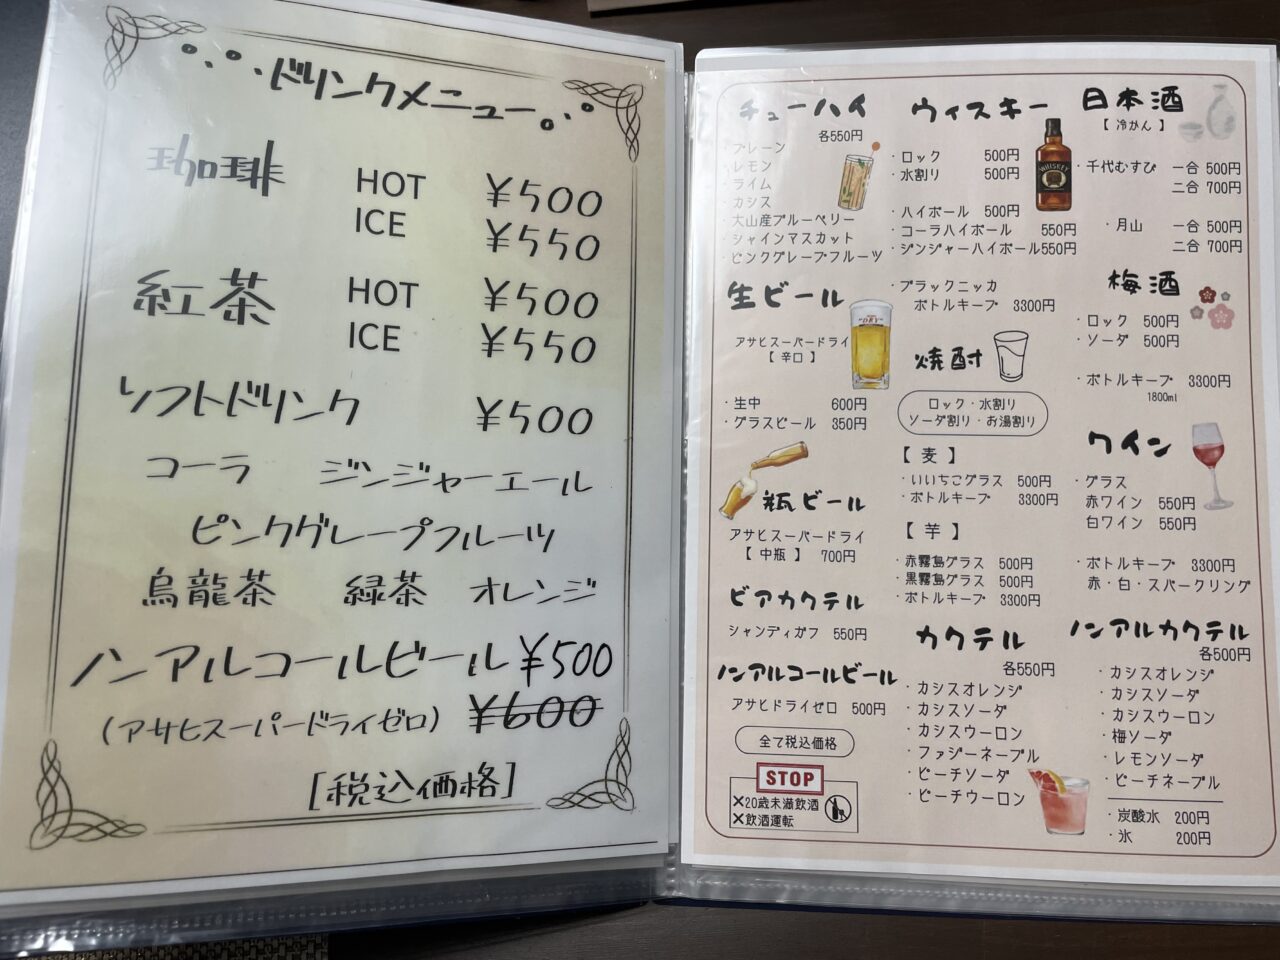 ドリンクメニュー
珈琲 HOT ¥500
ICE ¥550
紅茶 HOT ¥500
ICE ¥550
ソフトドリンク ¥500
コーラ ジンジャーエール
ピンクグレープフルーツ
烏龍茶 緑茶 オレンジ
ノンアルコールビール ¥500
(アサヒスーパードライゼロ) ¥600
[税込価格]
チューハイ
各550円
・プレーン
・レモン
・ライム
・カシス
・大山産ブルーベリー
・シャインマスカット
・ピンクグレープフルーツ
生ビール
アサヒスーパードライ
【辛口】
・生中 600円
・グラスビール 350円
瓶ビール
アサヒスーパードライ
【中瓶】 700円
ビアカクテル
シャンディガフ 550円
ノンアルコールビール
アサヒドライゼロ 500円
全て税込価格
STOP
×20歳未満飲酒
×飲酒運転
ウィスキー
・ロック 500円
・水割り 500円
・ハイボール 500円
・コーラハイボール 550円
・ジンジャーハイボール550円
・ブラックニッカ
ボトルキープ 3300円
WHISKEY
焼酎
ロック・水割り
ソーダ割り・お湯割り
【麦】
・いいちこグラス 500円
・ボトルキープ 3300円
【芋】
・赤霧島グラス 500円
・黒霧島グラス 500円
・ボトルキープ 3300円
カクテル
各550円
・カシスオレンジ
・カシスソーダ
・カシスウーロン
・ファジーネーブル
・ピーチソーダ
・ピーチウーロン
日本酒
【冷かん】
・千代むすび 一合 500円
二合 700円
・月山 一合 500円
二合 700円
梅酒
・ロック 500円
・ソーダ 500円
・ボトルキープ 3300円
1800ml
ワイン
・グラス
赤ワイン 550円
白ワイン 550円
・ボトルキープ 3300円
赤・白・スパークリング
ノンアルカクテル
各500円
・カシスオレンジ
・カシスソーダ
・カシスウーロン
・梅ソーダ
・レモンソーダ
・ピーチネーブル
・炭酸水 200円
・氷 200円